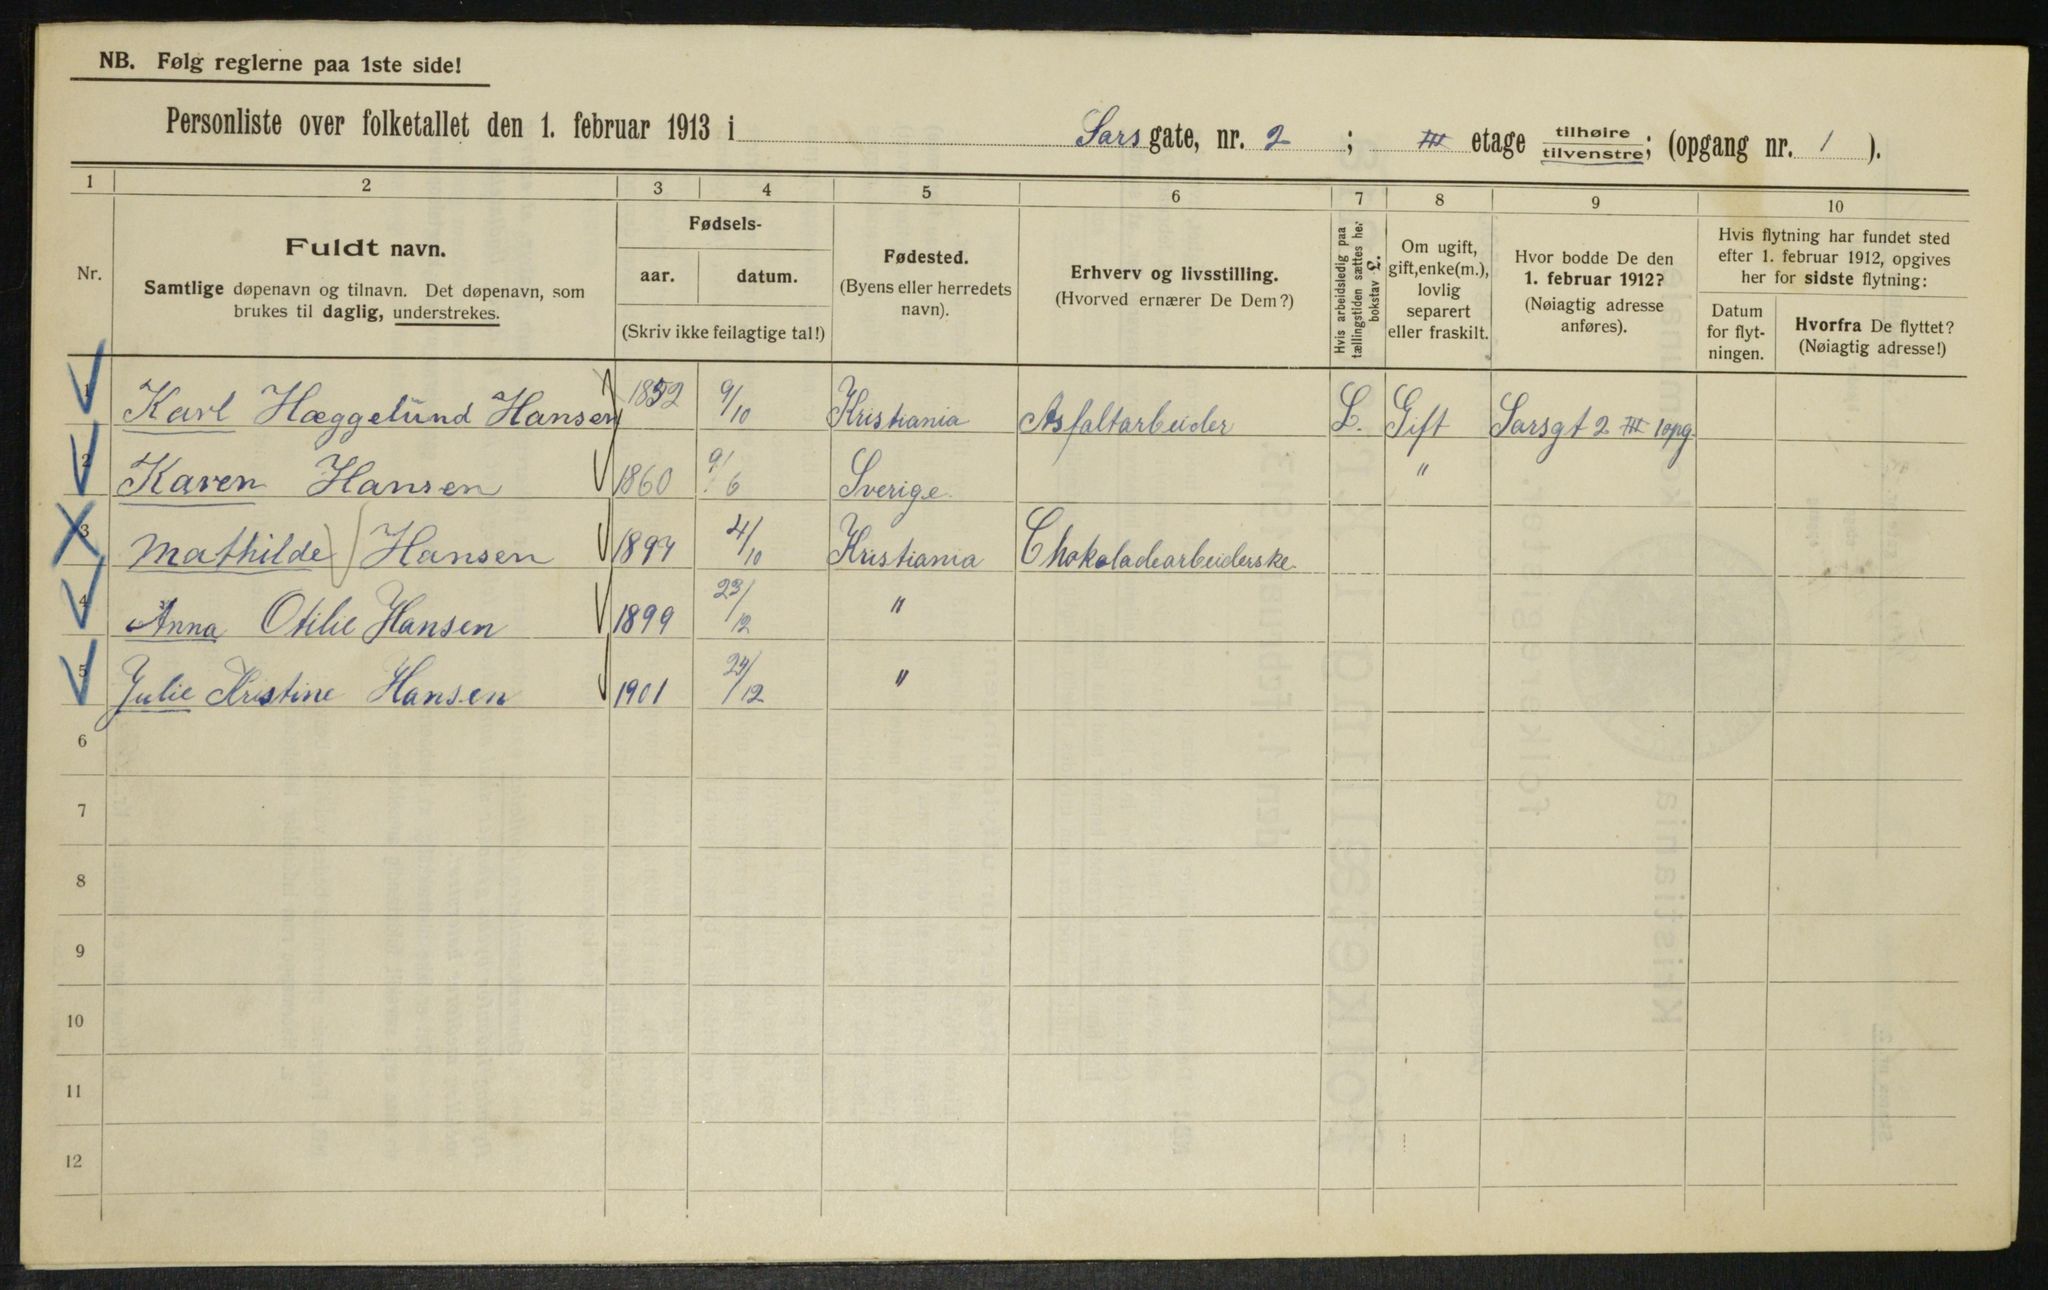 NB. Følg reglerne paa 1ste side!
Personliste over folketallet den 1. februar 1913 i Sars gate, nr. 2 ; III etage tilhøire tilvenstre; (opgang nr. 1 ).
1 2 3 4 5 6 7 8 9 10
Nr.
Fuldt navn.
Samtlige døpenavn og tilnavn. Det døpenavn, som
brukes til daglig, understrekes.
Fødsels-
aar. datum.
(Skriv ikke feilagtige tal!)
Fødested.
(Byens eller herredets
navn).
Erhverv og livsstilling.
(Hvorved ernærer De Dem?)
Hvis arbeidsledig paa
tællingstiden sættes her
bokstav L.
Om ugift,
gift, enke(m.),
lovlig
separert
eller fraskilt.
Hvor bodde De den
1. februar 1912?
(Nøiagtig adresse
anføres).
Hvis flytning har fundet sted
efter 1. februar 1912, opgives
her for sidste flytning:
Datum
for flyt-
ningen.
Hvorfra De flyttet?
(Nøiagtig adresse!)
1 Karl Hæggelund Hansen 1852 9/10 Kristiania Asfaltarbeider L. Gift Sarsgt 2 III 1opg.
2 Karen Hansen 1860 9/6 Sverige. "
3 Mathilde Hansen 1894 4/10 Kristiania Chokoladearbeiderske
4 Anna Otilie Hansen 1899 23/12 "
5 Julie Kristine Hansen 1901 24/12 "
6
7
8
9
10
11
12